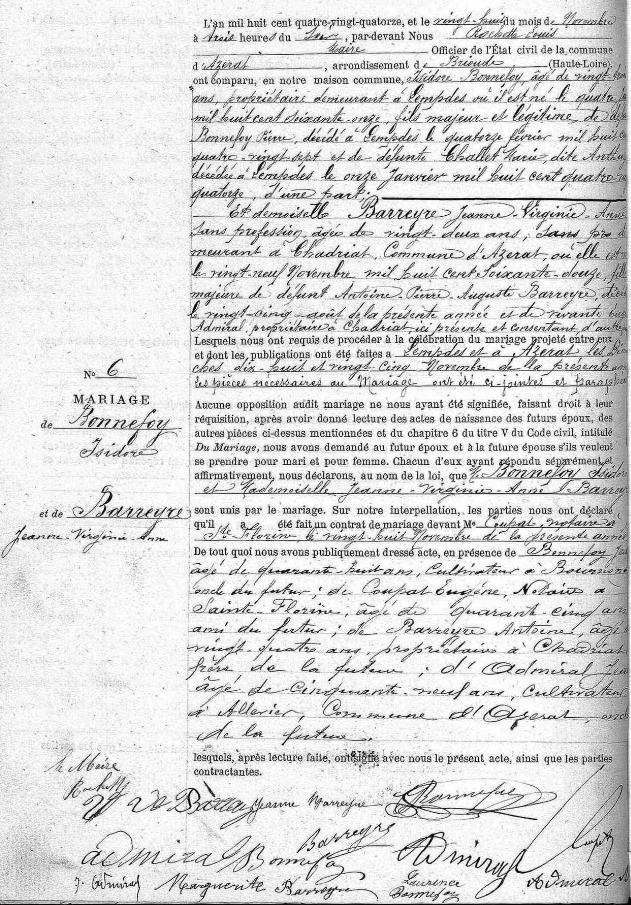 L'an mil huit cent quatre-vingt-quatorze, et le vingt huit du mois de Novembre
à trois heures du soir, par-devant Nous Rochette Louis
Maire Officier de l'État civil de la commune
d'Azerat, arrondissement de Brioude (Haute-Loire)
ont comparu, en notre maison commune, Isidore Bonnefoy, âgé de vingt
ans, propriétaire demeurant à Lempdes où il est né le quatre
mil huit cent soixante onze, fils majeur et légitime, de
Bonnefoy Pierre, décédé à Lempdes le quatorze février mil huit
quatre-vingt sept et de défunte Challet Marie, dite
décédée à Lempdes le onze Janvier mil huit cent quatre
quatorze, d'une part;
Et demoiselle Barreyre Jeanne-Virginie-Anne
sans profession, âgée de vingt-deux ans; sans pro
meurant à Chadriat, Commune d'Azerat, où elle est
le vingt neuf Novembre mil huit cent soixante-douze, fille
majeure de défunt Antoine-Pierre Auguste Barreyre,
le vingt cinq août de la présente année et de vivante
Admiral, propriétaire à Chadriat, ici présente et consentant, d'autre
Lesquels nous ont requis de procéder à la célébration du mariage projeté entre eux
et dont les publications ont été faites à Lempdes et à Azerat les
ches dix-huit et vingt cinq Novembre de la présente
les pièces nécessaires au Mariage ont été ci-jointes et
No 6
MARIAGE
de Bonnefoy
Isidore
et de Barreyre
Jeanne-Virginie-Anne
Aucune opposition audit mariage ne nous ayant été signifiée, faisant droit à leur
réquisition, après avoir donné lecture des actes de naissance des futurs époux, des
autres pièces ci-dessus mentionnées et du chapitre 6 du titre V du Code civil, intitulé
Du Mariage, nous avons demandé au futur époux et à la future épouse s'ils veulent
se prendre pour mari et pour femme. Chacun d'eux ayant répondu séparément et
affirmativement, nous déclarons, au nom de la loi, que Mr Bonnefoy Isidore
et Mademoiselle Jeanne-Virginie-Anne Barreyre
sont unis par le mariage. Sur notre interpellation, les parties nous ont déclaré
qu'il a été fait un contrat de mariage devant Me Coupat, notaire à
Ste Florine le vingt huit Novembre de la présente année
De tout quoi nous avons publiquement dressé acte, en présence de Bonnefoy
âgé de quarante-huit ans, Cultivateur à
oncle du futur; de Coupat Eugène, Notaire à
Sainte-Florine, âgé de quarante-cinq ans
ami du futur; de Barreyre Antoine, âgé
vingt-quatre ans, propriétaire à Chadriat
frère de la future; d'Admiral
âgé de cinquante-neuf ans, Cultivateur
à Allevier, Commune d'Azerat,
de la future.
lesquels, après lecture faite, ont signé avec nous le présent acte, ainsi que les parties
contractantes.
le Maire
Rochette
Jeanne Barreyre
Bonnefoy
Barreyre
Admiral
Bonnefoy
Admiral
J. Admiral
Marguerite Barreyre
Laurence
Bonnefoy
Admiral